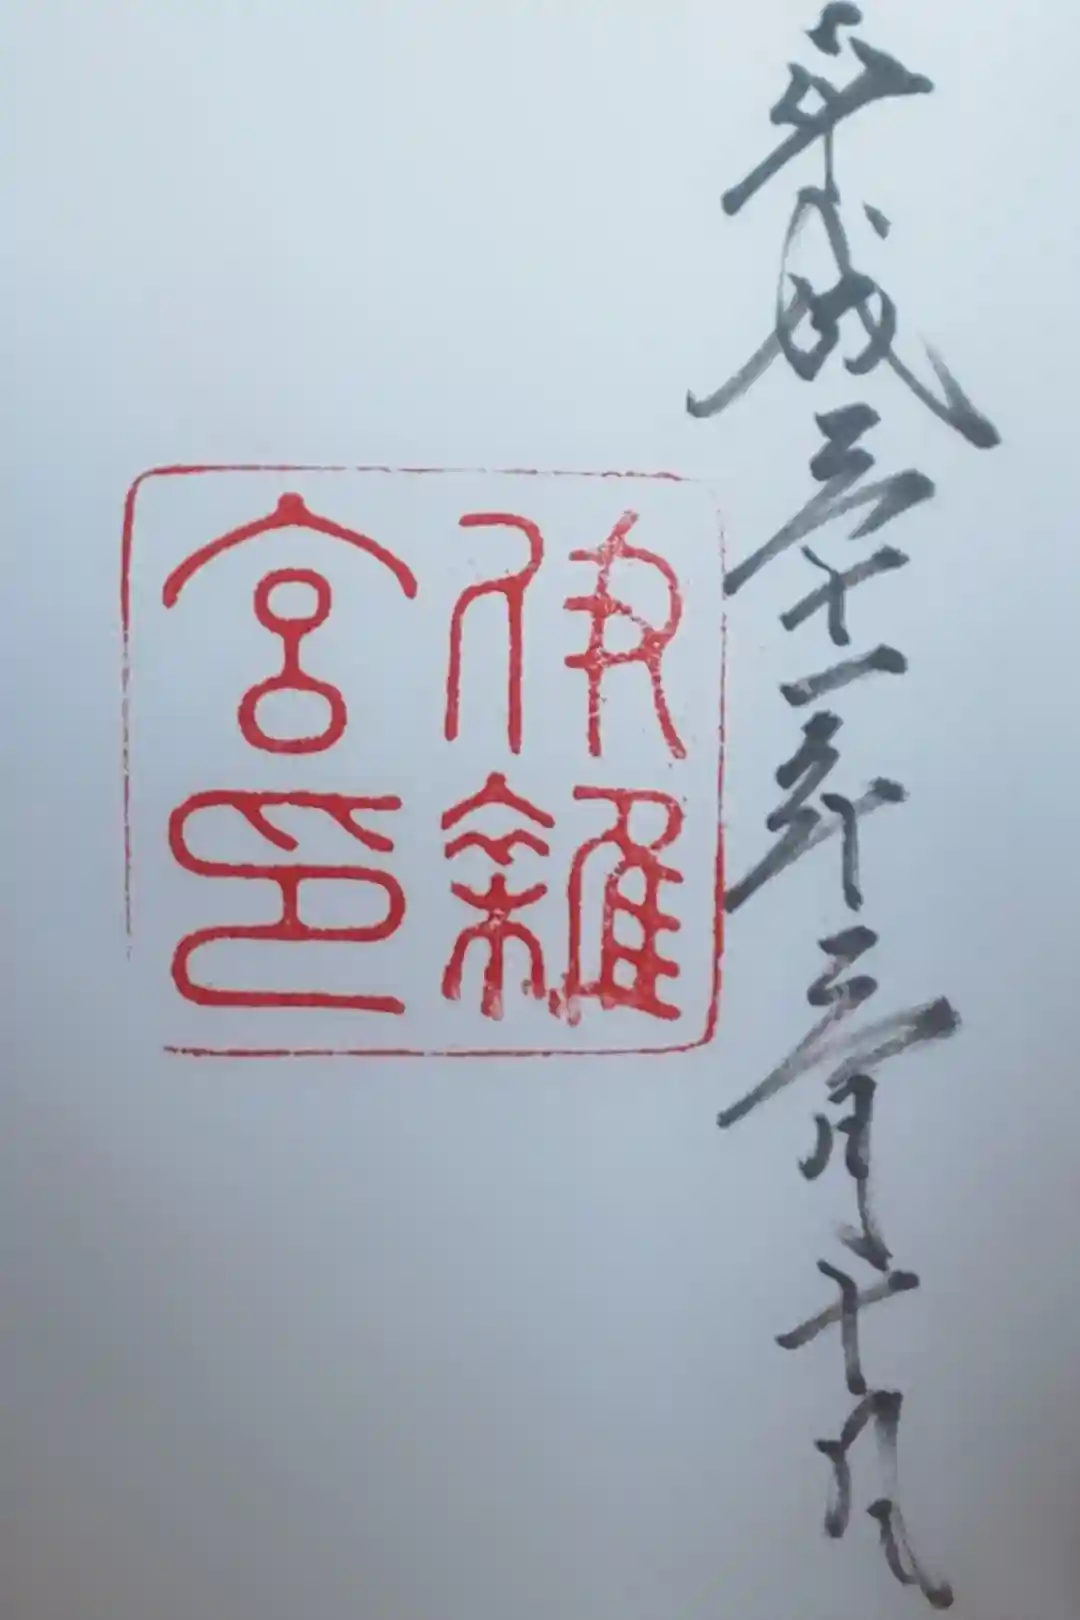 平成三十一年三月十九日
伊雜
宮印